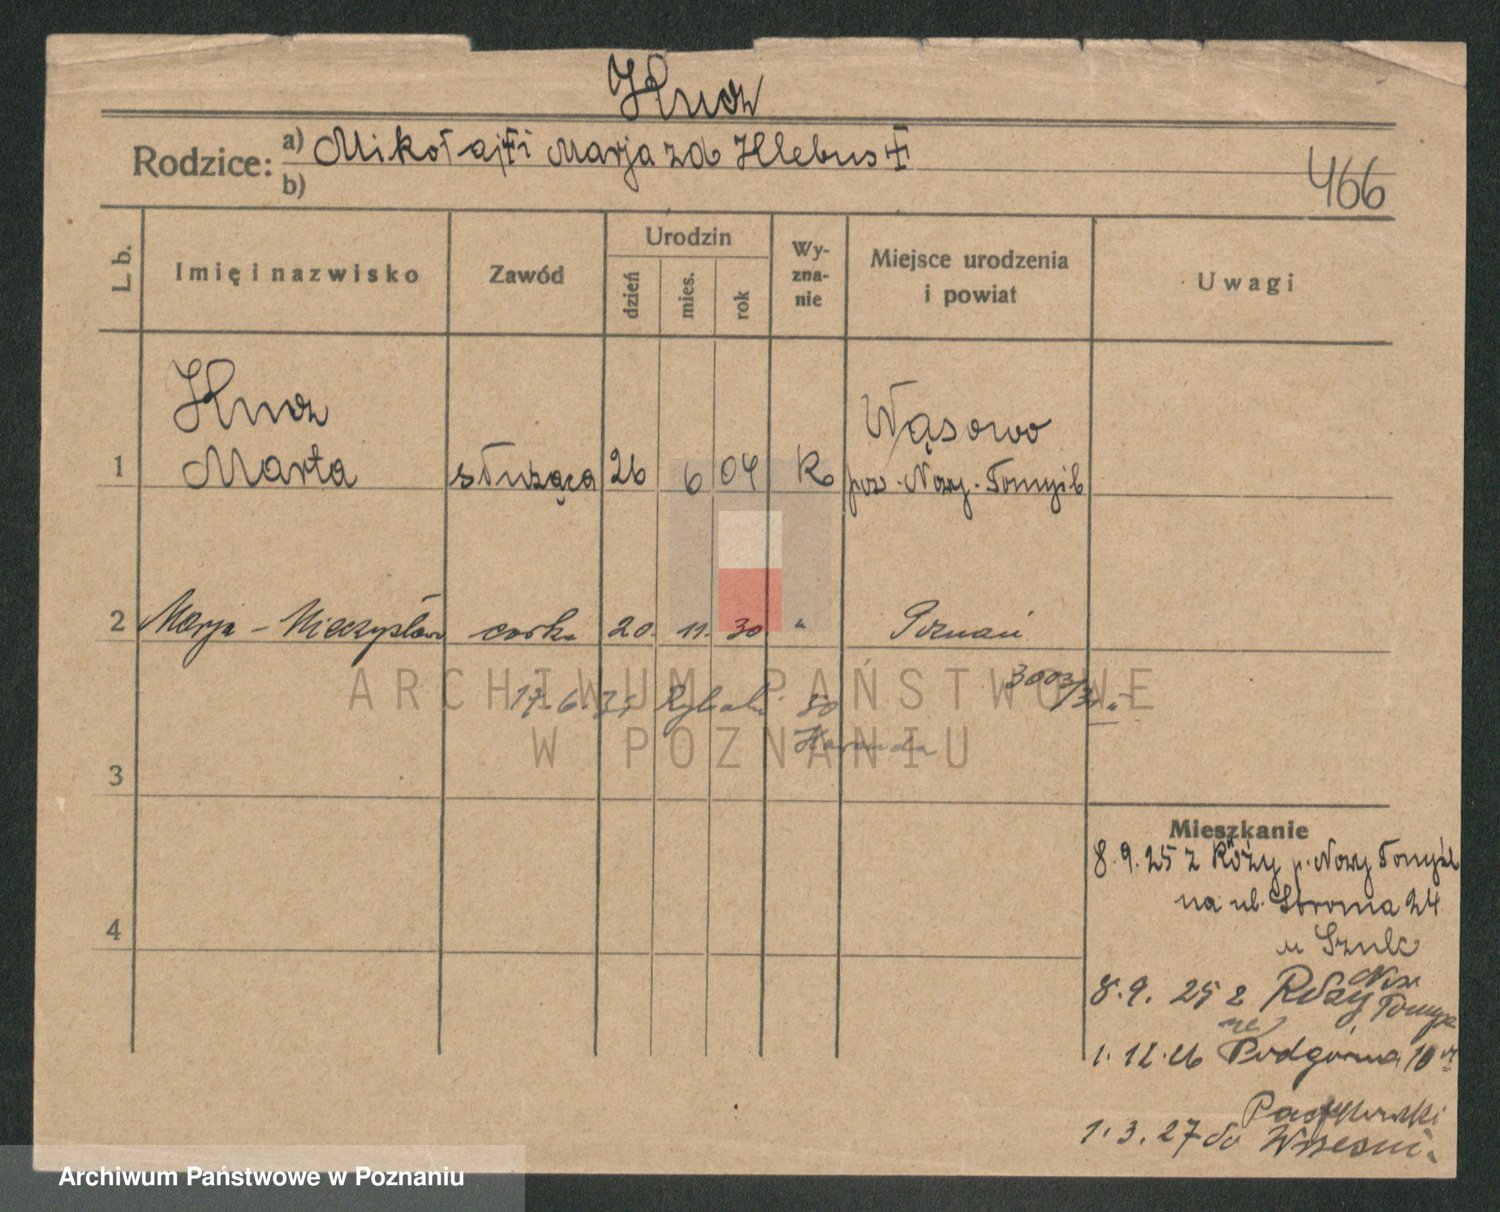 Hucz
Rodzice: a) Mikołaj † i Marja z d Hlebus †
b)
466
L. b.
Imię i nazwisko
Zawód
Urodzin
dzień
mies.
rok
Wy-
zna-
nie
Miejsce urodzenia
i powiat
Uwagi
Hucz
1 Marta służąca 26 6 04 K Wąsowo
pow. Nowy-Tomyśl
2 Marja - Mieczysława corka 20. 11. 30 " Poznań
17. 6. 31
3
4
Mieszkanie
8.9.25 z Róży p. Nowy Tomyśl
na ul. Stroma 24
u Szulc
8.9. 25 z Róży Now.
Tomyśl
na
1.12.26 Podgórna 10
1.3.27 do Wrześni
ARCHIWUM PAŃSTWOWE
W POZNANIU
Archiwum Państwowe w Poznaniu